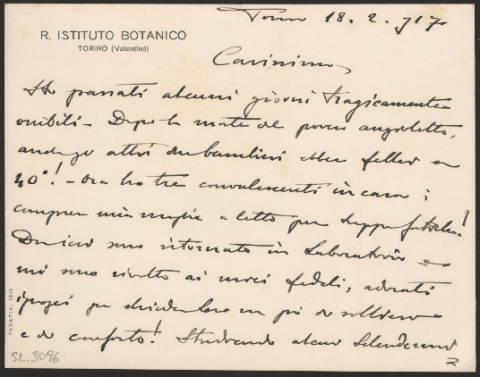 R. ISTITUTO BOTANICO
TORINO (Valentino)
Torino 18. 2. 917
Carissimo,
Ho passati alcuni giorni tragicamente
orribili - Dopo la morte del povero angioletto,
altri due bambini ebbero febbre
40°! - Ora ho tre convalescenti in casa;
compresa mia moglie a letto per
sono ritornato in Laboratorio e
mi sono rivolto ai miei fedeli, adorati
per chiedere loro un po' di sollievo
e di conforto! Studiando alcuni
2
SL.3096